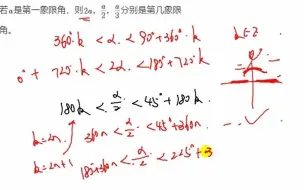 若α是第一象限角，则2α，α/2，α/3分别是第几象限
角。
360°·k < α < 90°+360°·k  k∈Z
0°+720°·k < 2α < 180°+720°k
180k < α/2 < 45°+180k
k=2n  360n < α/2 < 45°+360n
k=2n+1  180°+360n < α/2 < 225°+3